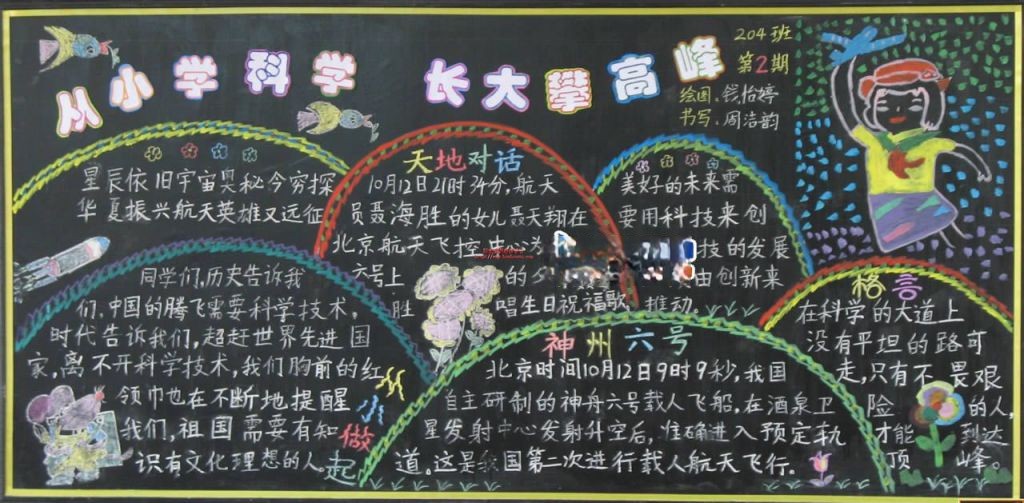 从小学科学 长大攀高峰
204班
第2期
绘图.钱怡婷
书写.周浩韵
星辰依旧宇宙奥秘今穷探
华夏振兴航天英雄又远征
天地对话
10月12日21时34分,航天
员聂海胜的女儿聂天翔在
北京航天飞控中心为
六号上的
胜唱生日祝福歌
美好的未来需
要用科技来创
技的发展
由创新来
推动。
同学们,历史告诉我
们,中国的腾飞需要科学技术,
时代告诉我们,超赶世界先进国
家,离不开科学技术,我们胸前的红
领巾也在不断地提醒
我们,祖国需要有知
识有文化理想的人。
从小做起
神州六号
北京时间10月12日9时9秒,我国
自主研制的神舟六号载人飞船,在酒泉卫
星发射中心发射升空后,准确进入预定轨
道。这是我国第二次进行载人航天飞行.
格言
在科学的大道上
没有平坦的路可
走,只有不畏艰
险的人,
才能到达
顶峰。